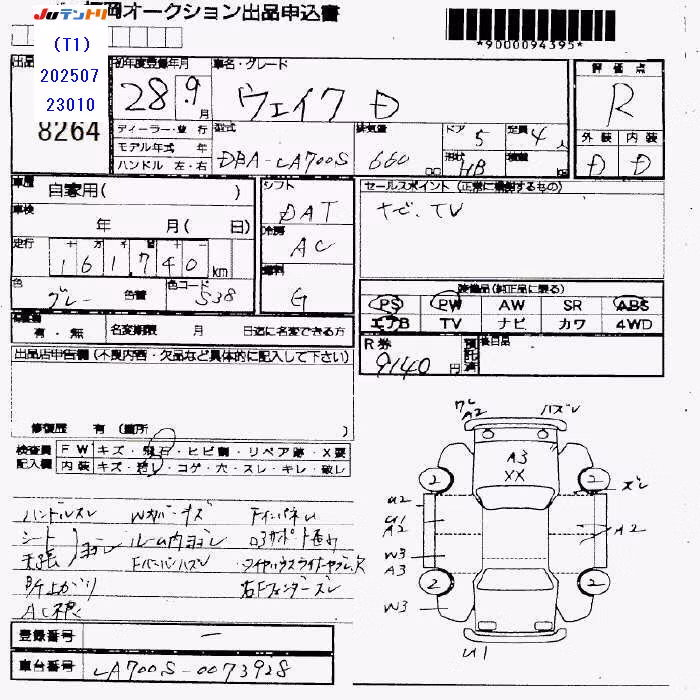 JUテントリ
福岡オークション出品申込書
*9000094395*
(T1)
202507
23010
8264
初年度登録年月
28 9月
車名・グレード
ウェイク D
評価点
R
ディーラー・並 行
モデル年式 年
ハンドル 左・右
型式
DBA-LA700S
排気量
660
ドア 5
形状 HB
定員 4人
積載
外装 内装
D D
車歴 自家用( )
車検 年 月( 日)
走行 161,740 km
色 グレー 色替
色コード S38
シフト
DAT
冷房
AC
燃料
G
セールスポイント (正常に機能するもの)
ナビ、TV
装備品(純正品に限る)
PS PW AW SR ABS
エアB TV ナビ カワ 4WD
有・無
名変期限 月 日迄に名変できる方
R券
9140円
預託済
後日品
出品店申告欄 (不良内容・欠品など具体的に記入して下さい)
修復歴 有 (箇所 )
検査員記入欄
FW キズ・飛石・ヒビ割・リペア跡・X要
内装 キズ・汚レ・コゲ・穴・スレ・キレ・破レ
ハンドルスレ
シート
天張
ヨゴレ
ルーム内ヨゴレ
Fバンパーハズレ
右Fフェンダーズレ
ワレ
A2
ハズレ
A3
XX
2
2
ズレ
U2
U1
A2
A2
W3
A3
2
2
W3
U1
登録番号 ー
車台番号 LA700S-0073928